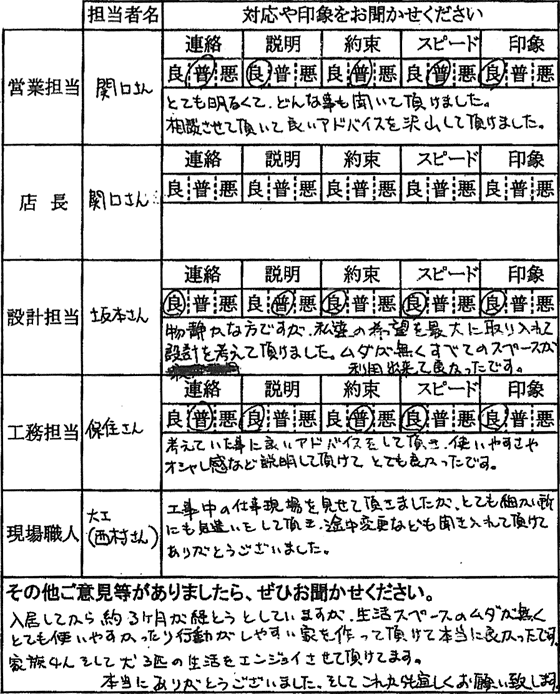 担当者名 対応や印象をお聞かせください
営業担当 関口さん
連絡 説明 約束 スピード 印象
良 普 悪 良 普 悪 良 普 悪 良 普 悪 良 普 悪
とても明るくて、どんな事も聞いて頂けました。
相談させて頂いて良いアドバイスを沢山して頂けました。
店長 関口さん
連絡 説明 約束 スピード 印象
良 普 悪 良 普 悪 良 普 悪 良 普 悪 良 普 悪
設計担当 坂本さん
連絡 説明 約束 スピード 印象
良 普 悪 良 普 悪 良 普 悪 良 普 悪 良 普 悪
物静かな方ですが、私達の希望を最大に取り入れて
設計を考えて頂けました。ムダが無くすべてのスペースが
利用出来て良かったです。
工務担当 保住さん
連絡 説明 約束 スピード 印象
良 普 悪 良 普 悪 良 普 悪 良 普 悪 良 普 悪
考えていた事に良いアドバイスをして頂き、使いやすさや
オシャレ感など説明して頂けて とても良かったです。
現場職人 大工
(西村さん)
工事中の仕事現場を見せて頂きましたが、とても細かい所
にも気遣いをして頂き、途中変更なども聞き入れて頂けて
ありがとうございました。
その他ご意見等がありましたら、ぜひお聞かせください。
入居してから約3ヶ月が経とうとしていますが、生活スペースのムダが無く
とても使いやすかったり行動がしやすい家を作って頂けて本当に良かったです。
家族4人そして犬3匹の生活をエンジョイさせて頂けてます。
本当にありがとうございました。そしてこれからも宜しくお願い致します